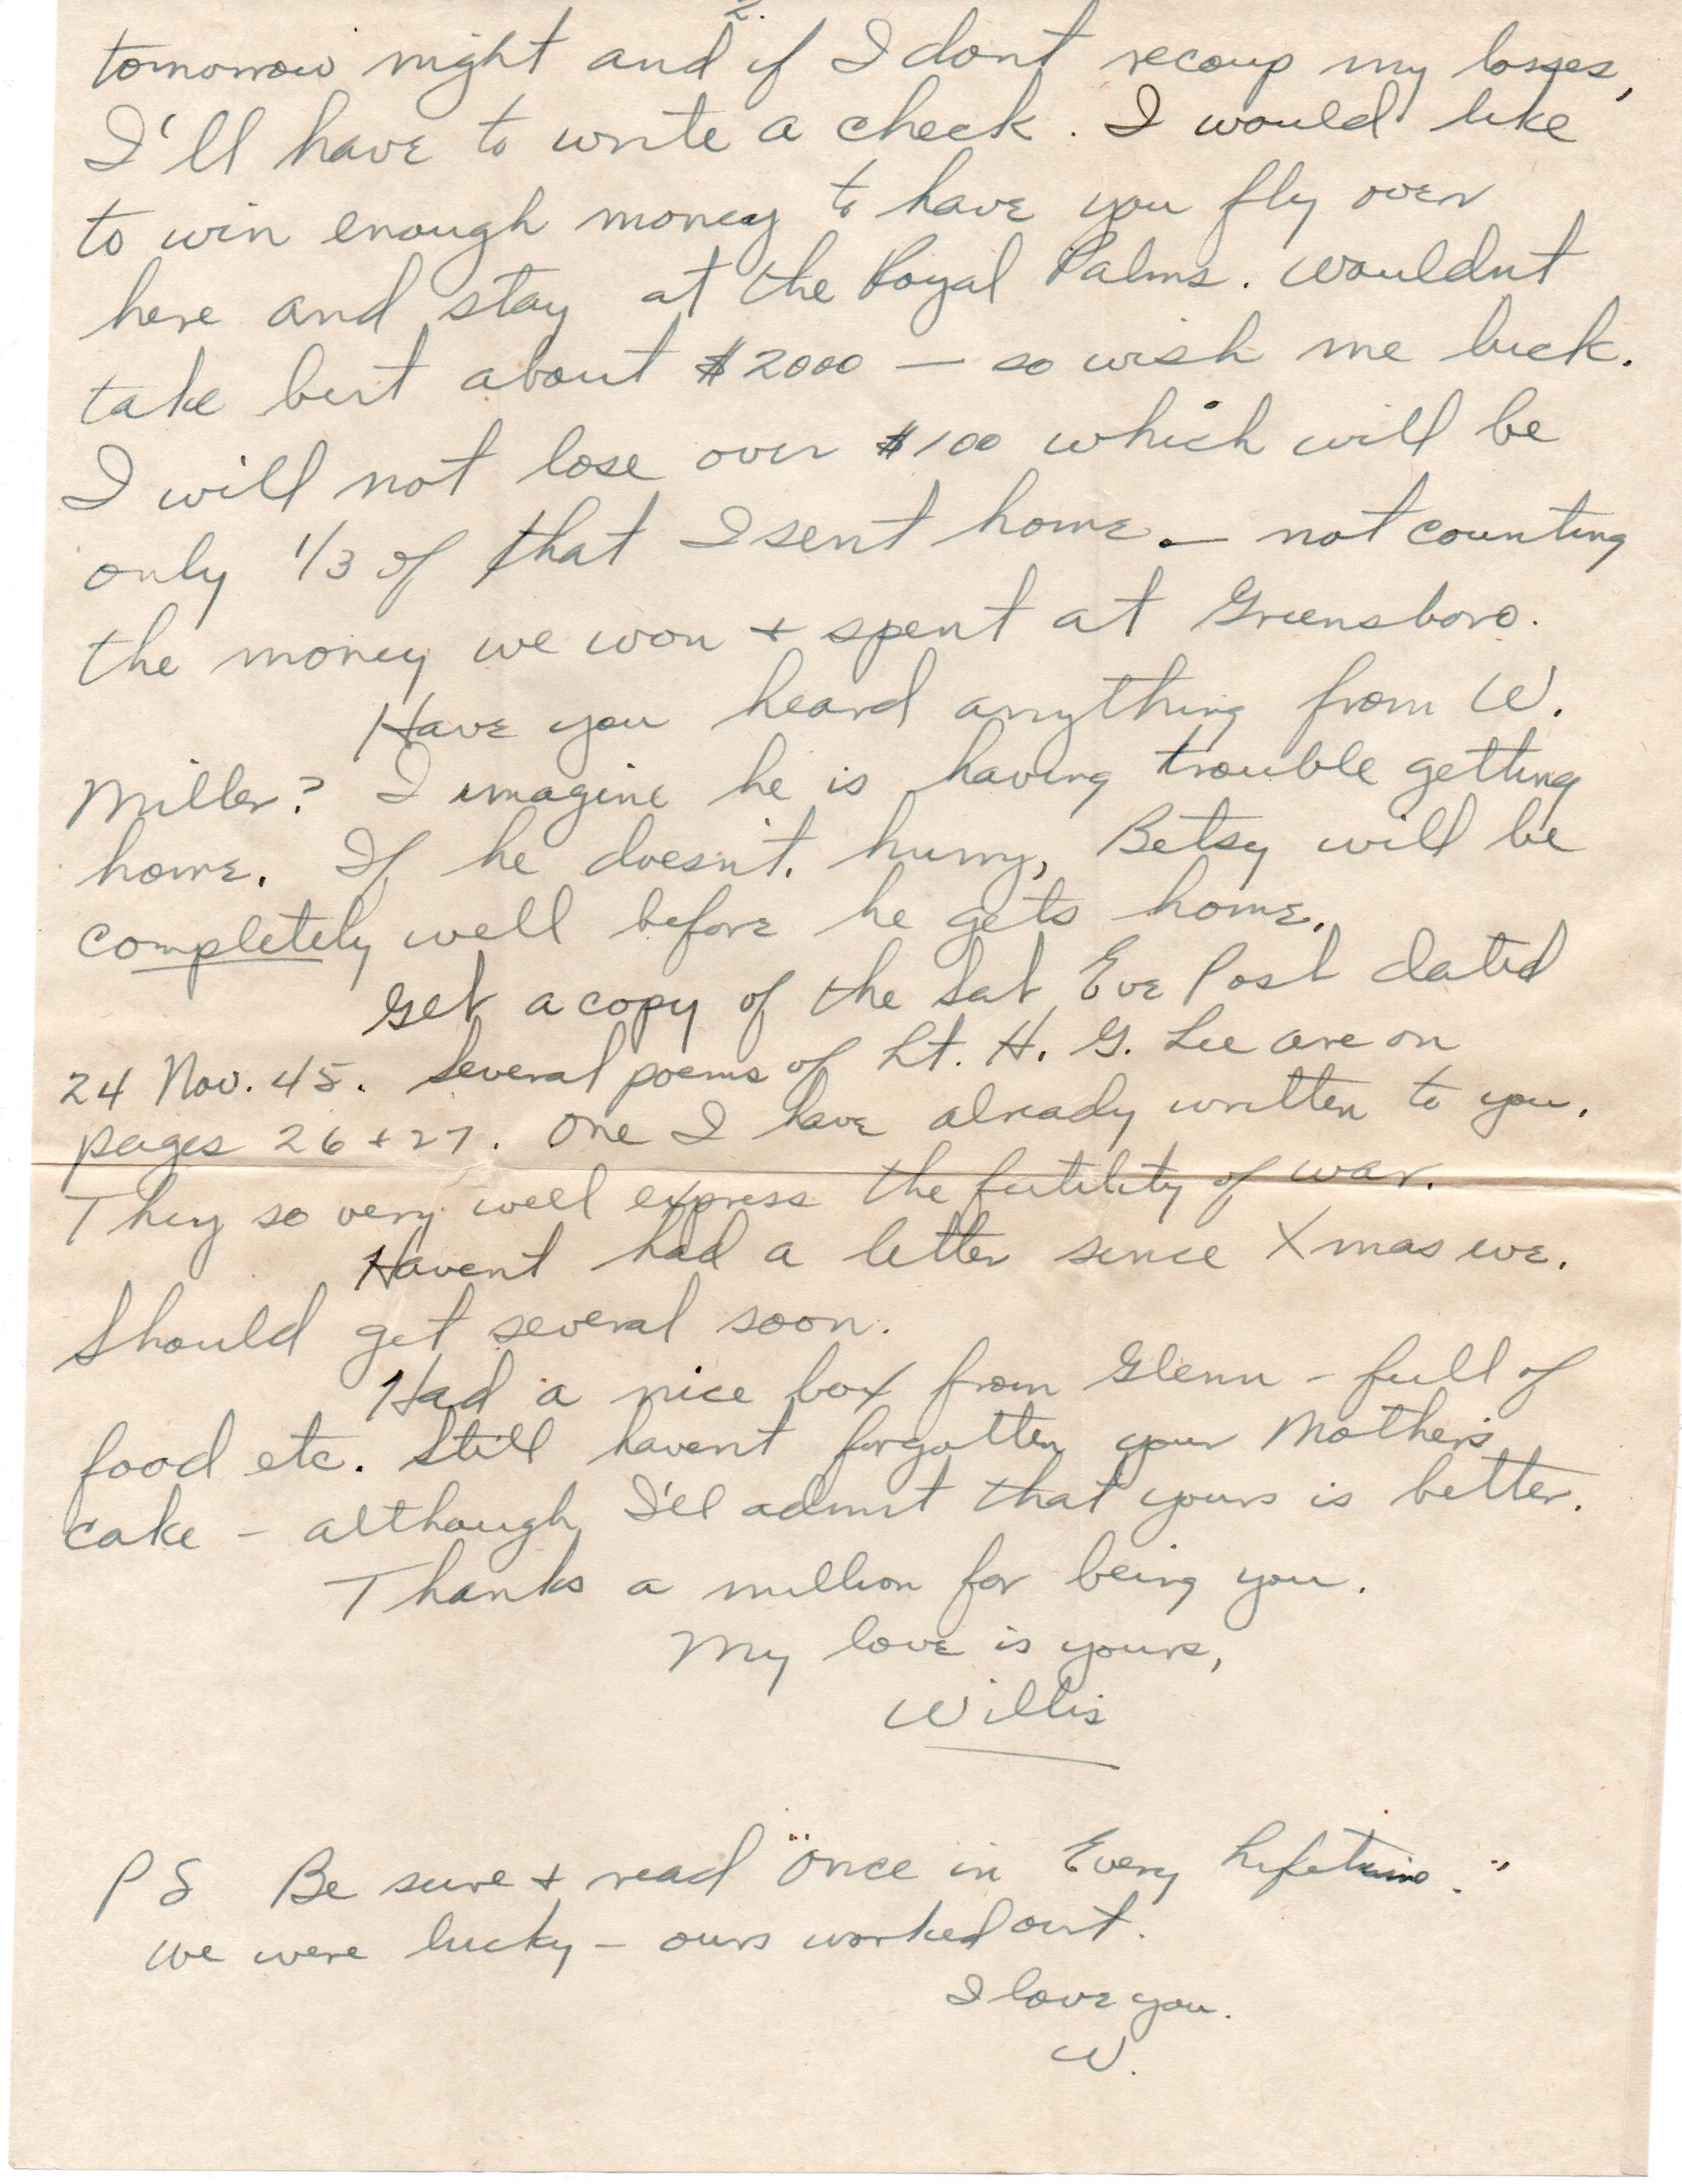 2.
tomorrow night and if I dont recoup my losses,
I'll have to write a check. I would like
to win enough money to have you fly over
here and stay at the Royal Palms. Wouldnt
take but about $2000 — so wish me luck.
I will not lose over $100 which will be
only 1/3 of that I sent home — not counting
the money we won + spent at Greensboro.
Have you heard anything from W.
Miller? I imagine he is having trouble getting
home. If he doesn't hurry, Betsy will be
completely well before he gets home.
Get a copy of the Sat Eve Post dated
24 Nov. 45. Several poems of Lt. H. G. Lee are on
pages 26 + 27. One I have already written to you.
They so very well express the futility of war.
Havent had a letter since Xmas eve.
Should get several soon.
Had a nice box from Glenn - full of
food etc. Still havent forgotten your Mother's
cake - although I'll admit that yours is better.
Thanks a million for being you.
My love is yours,
Willis
PS Be sure + read "Once in Every Lifetime."
We were lucky - ours worked out.
I love you.
W.